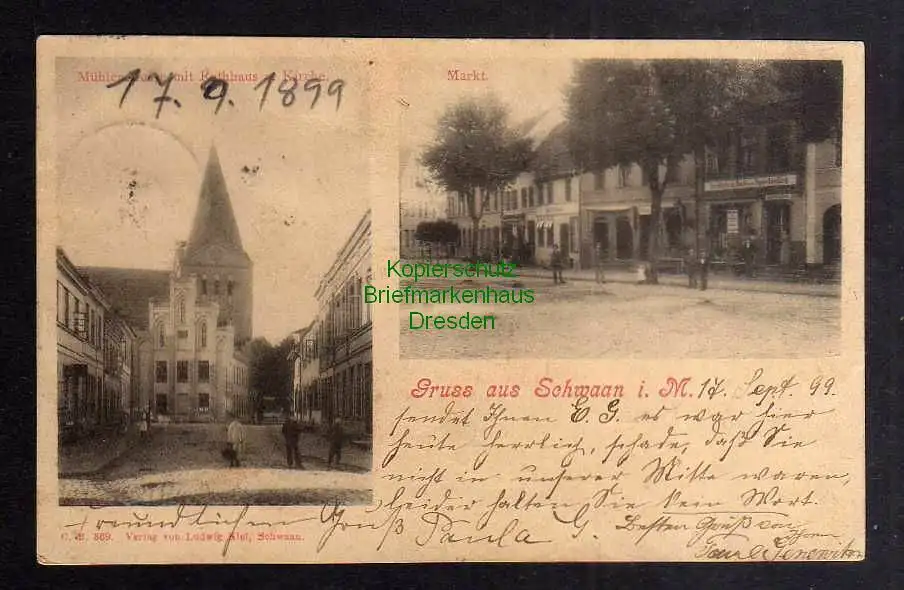 Mühlenstrasse mit Rathhaus u. Kirche.
17. 9. 1899
Markt.
Kopierschutz
Briefmarkenhaus
Dresden
Gruss aus Schwaan i. M. 17. Sept. 99.
sendet Ihnen E. G. es war hier
heute herrlich, schade, daß Sie
nicht in unserer Mitte waren,
leider halten Sie kein Wort.
Freundlichen Gruß Paula G. Besten Gruß von
Verlag von Ludwig Kiel, Schwaan.